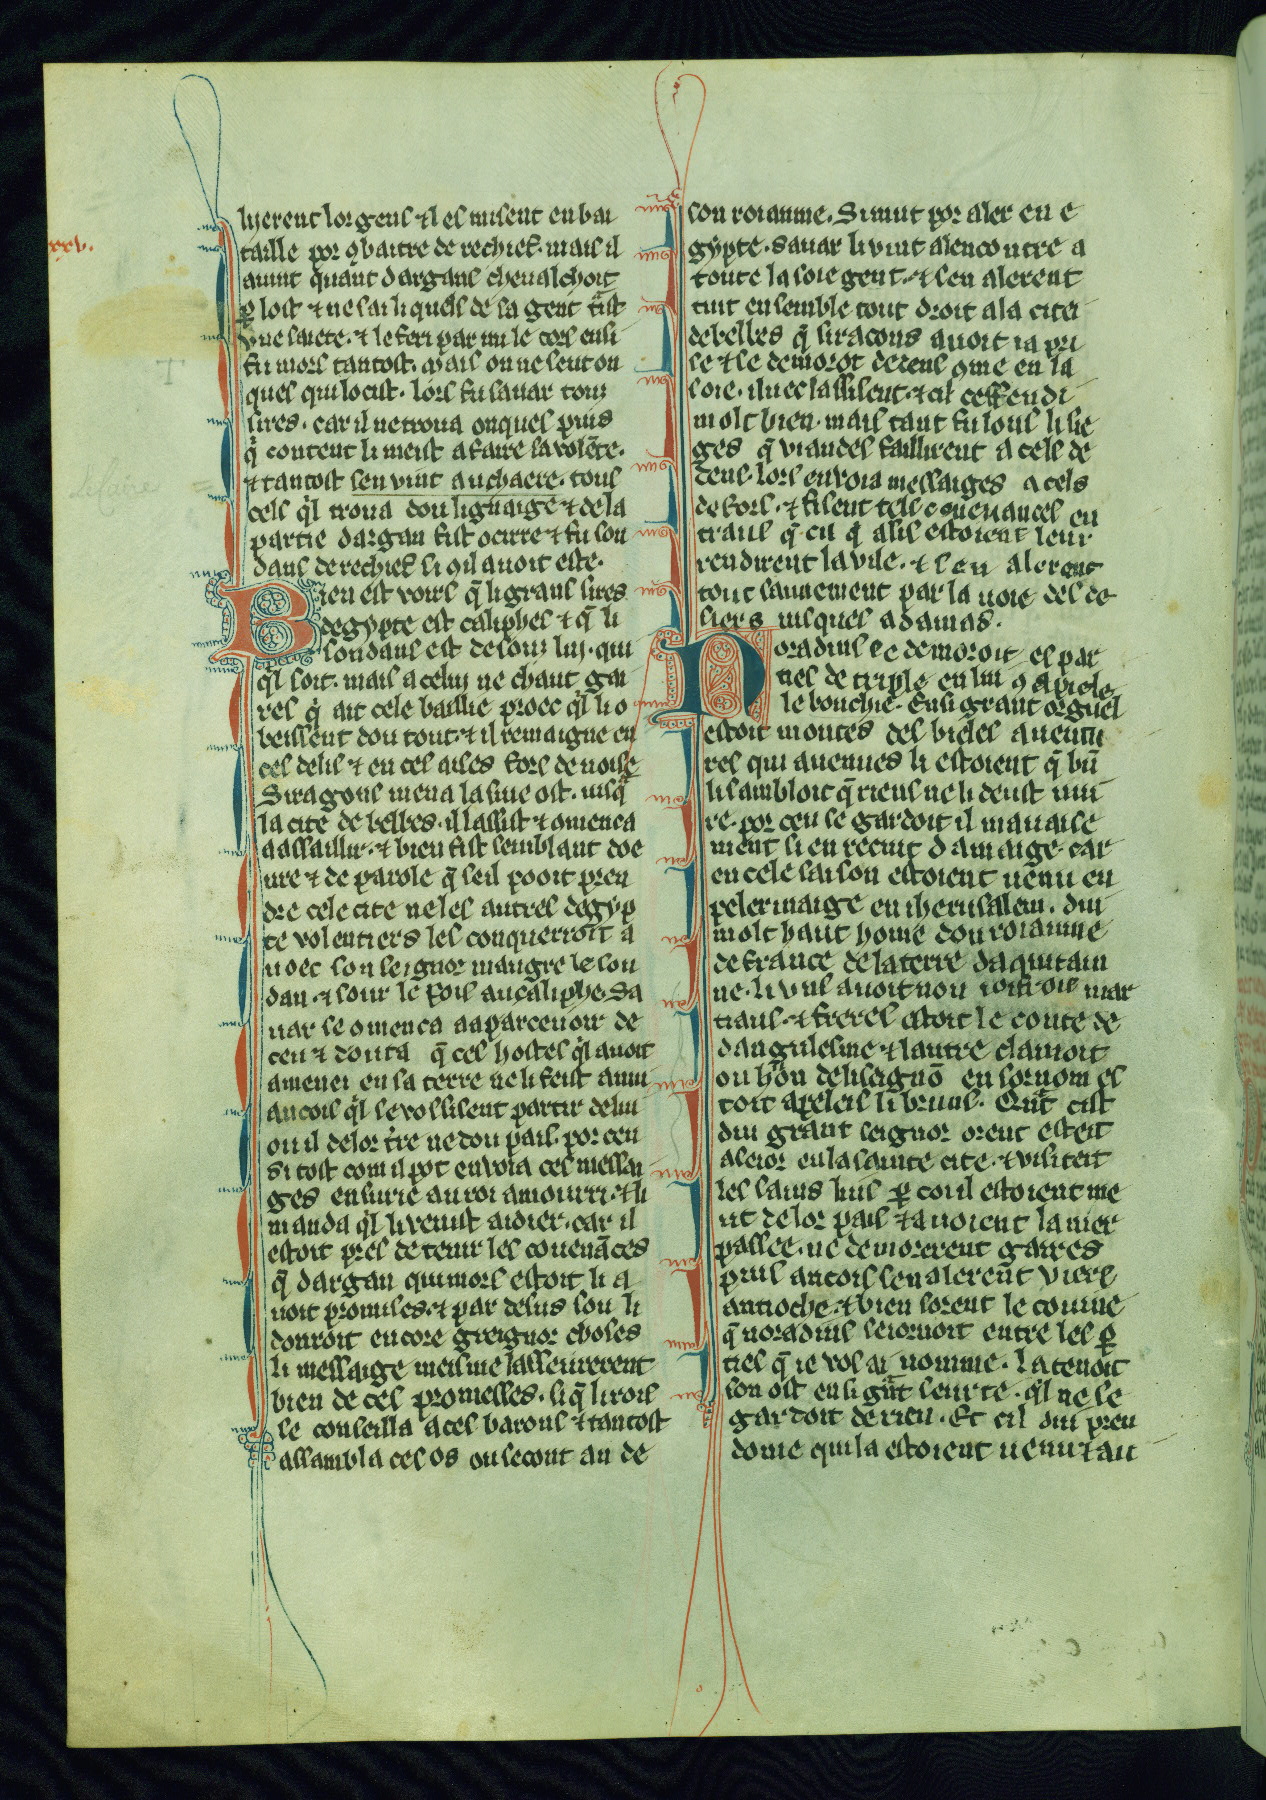 luierent lor genz ⁊ les misent en bai
taille por ꝯbatre de rechief. mais il
auint quant dargans cheualchoit
ꝑ lost ⁊ ne sai liquels de sa gent t̃ist
vne saiete. ⁊ le feri parmi le cors ensi
fu mors tantost. mais on ne seut on
ques qui locist. lors fu sauar touz
sires. car il ne troua onques puis
q̇ content li meist a faire sa volẽte.
⁊ tantost sen vint au chaere. tous
cels q̃l troua dou lignaige ⁊ de la
partie dargan fist ocirre ⁊ fu sou
dans de rechief si ꝯ il auoit este.
Bien est voirs q̃ li grans sires
degypte est caliphes ⁊ q̃ li
soudans est desouz lui. qui
q̃l soit. mais a celui ne chaut gai
res q̇ ait cele baillie proec q̃l li o
beissent dou tout. ⁊ il remaigne en
ces delis ⁊ en ces aises fors de noise
Siragons mena la siue ost. iusq̃
la cite de belbes. il lassist ⁊ ꝯmenca
a assaillir. ⁊ bien fist semblant doe
ure ⁊ de parole q̃ seil pooit pren
dre cele cite ne les autres degyp
te volentiers les conquerroit a
uoec son seignor maugre le sou
dan. ⁊ sour le pois au caliphe. Sa
uar se ꝯmenca a aparceuoir de
ceu ⁊ douta q̃ cel hostes q̃l auoit
amenei en sa terre ne li feist anui
ancois q̃l se vossisent partir de lui
ou il de lor t̃re ne dou pais. por ceu
si tost com il pot enuoia ces messai
ges en surie au roi amourri. ⁊ li
manda q̃l li venist aidier. car il
estoit pres de tenir les couenãces
q̃ dargan qui mors estoit li a
uoit promises. ⁊ par desus sou li
donroit encore greignor choses
li messaige meisme lasseurerent
bien de ces promesses. si q̃ li rois
se conseilla a ces barons ⁊ tantost
assambla ces os ou secont an de
son roiaume. Si mut por aler en e
gypte. Sauar li vint alencontre a
toute la soie gent. ⁊ sen alerent
tuit ensemble tout droit a la citei
de belbes q̃ siracons auoit ia pri
se ⁊ se demorot dedens ꝯme en la
soie. iluec lassisent. ⁊ cil ceffendi
molt bien. mais tant fu lons li sie
ges q̃ viandes faillirent a cels de
dens. lors enuoia messaiges a cels
de fors. ⁊ fisent tels couenances en
traus q̃ cil q̇ asis estoient leur
rendirent la vile. ⁊ sen alerent
tout sauuement par la uoie des de
siers iusques a damas.
Noradins ce demoroit es par
ties de triple en lui ꝯ apiele
le bouchie. Ensi grant orguel
estoit montes des bieles auentu
res qui auenues li estoient q̃ bñ
li sambloit q̃ riens ne li deust nui
re. por ceu se gardoit il mauaise
ment si en recuit damaige. car
en cele saison estoient uenu en
pelerinaige en iherusalem. dui
molt haut home dou roiaume
de france de la terre daquitain
ne. li vns auoit non mar
tiaus. ⁊ freres estoit le conte de
dangulesme ⁊ lautre clamoit
on hõu de lisaignõ en sornom es
toit apeleis li bruns. Qñt cist
dui grant seignor orent estei
a seior en la sainte cite. ⁊ visiteit
les sains luis ꝑ cou il estoient me
ut de lor pais ⁊ auoient la mer
passee. ne demorerent gaires
puis ancois sen alerent viers
antioche. ⁊ bien sorent le couine
q̃ noradins seiornoit entre les ꝑ
ties q̃ ie vos ai nomme. la tenoit
son ost en si gñt seurte. q̃l ne se
gardoit de rien. Et cil dui preu
dome qui la estoient uenu ⁊ au